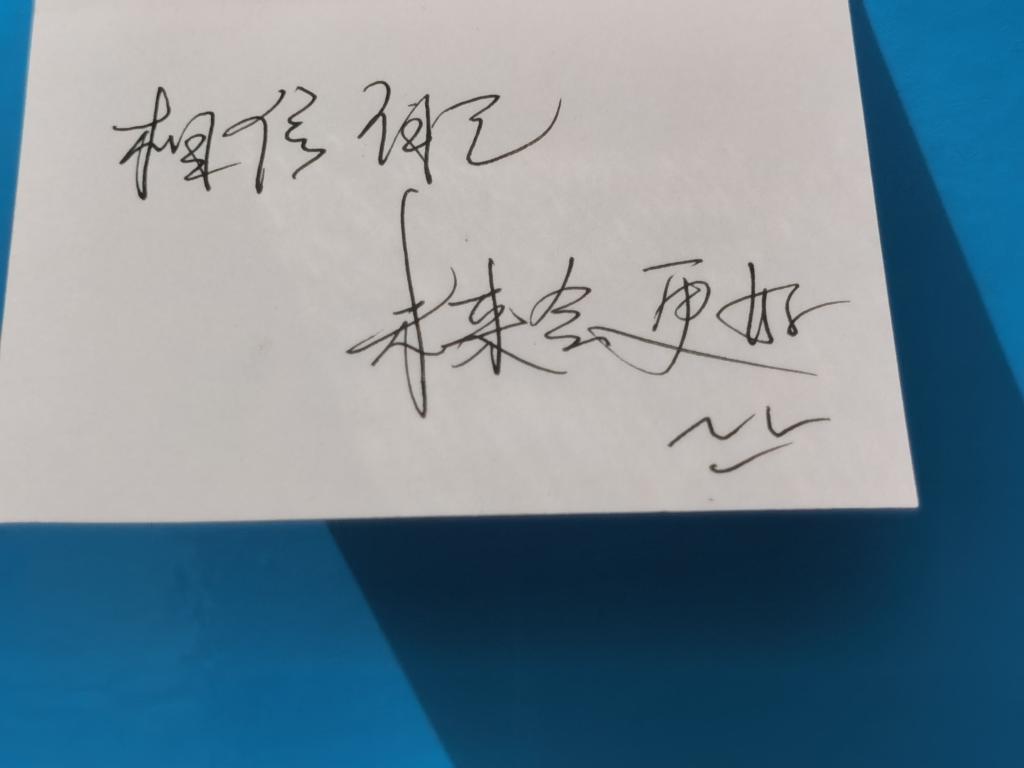 相信自己
未来会更好